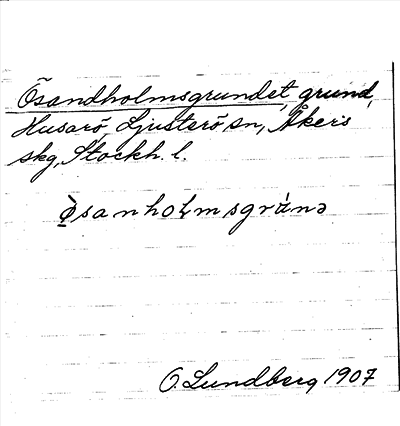 Ösandholmsgrundet, grund,
Husarö, Ljusterö sn, Åkers
skg, Stockh. l.
O. Lundberg 1907